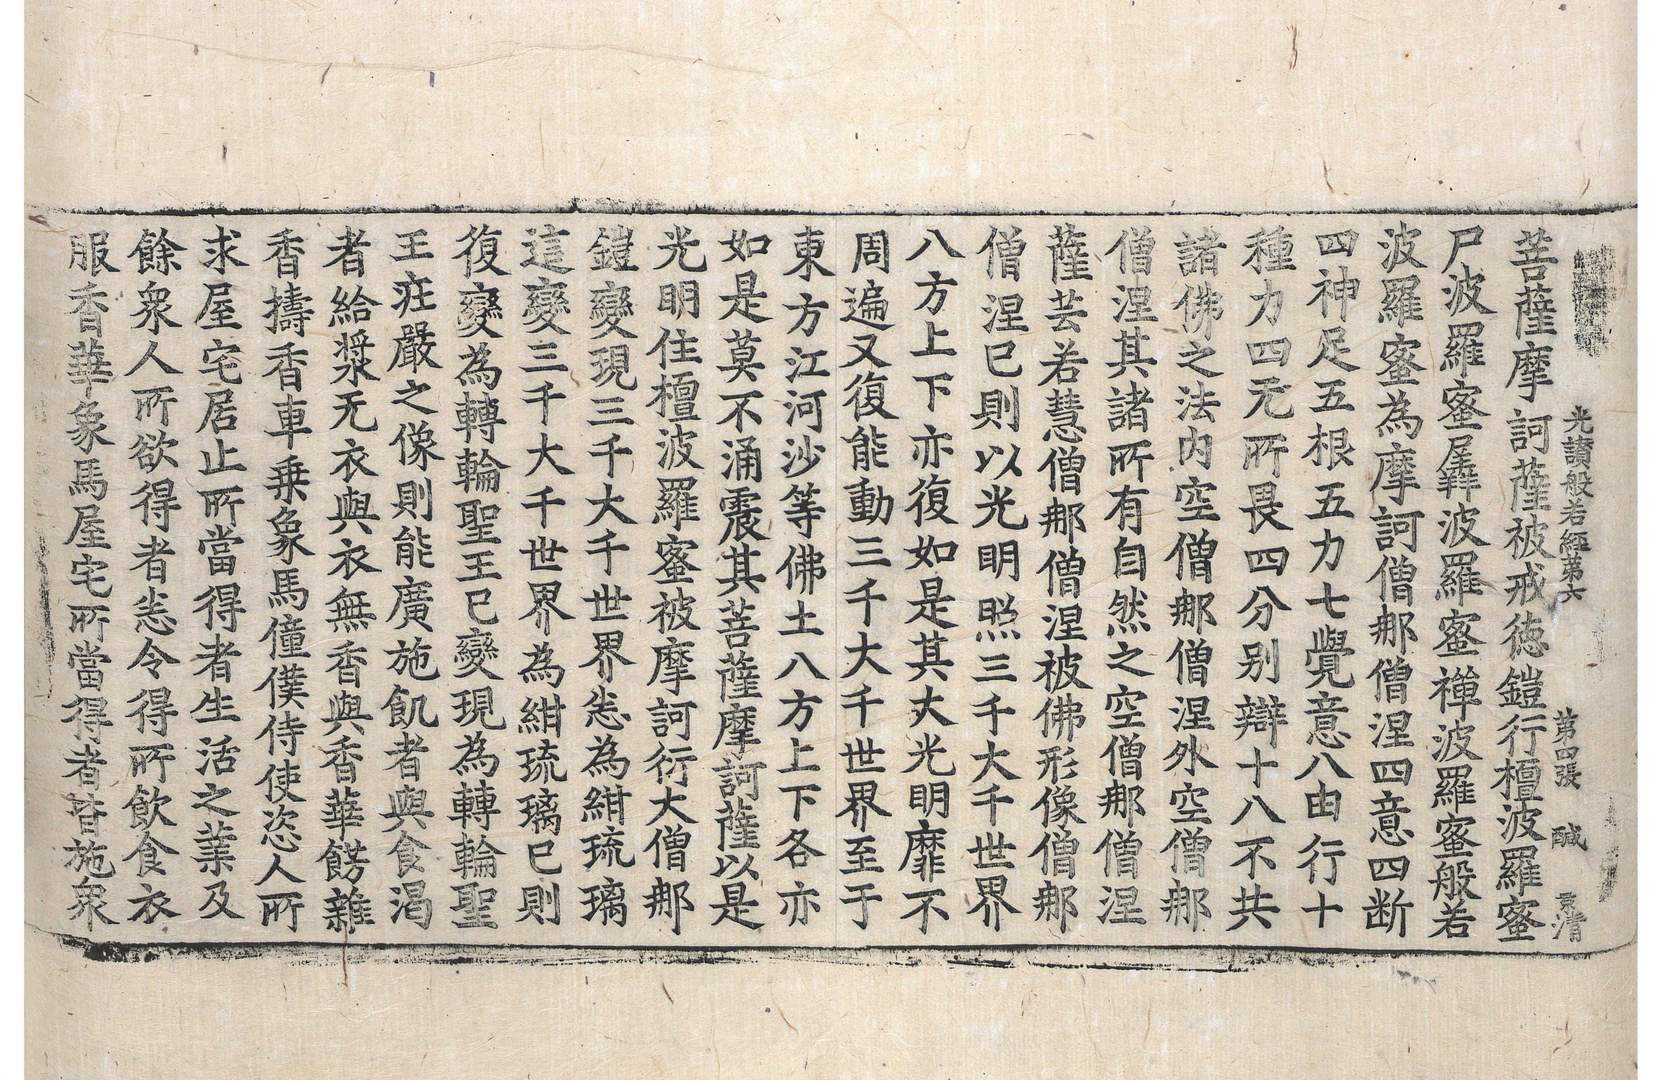 光讃般若經第六　第四張　醎　京清
菩薩摩訶薩被戒徳鎧行檀波羅蜜
尸波羅蜜羼波羅蜜禪波羅蜜般若
波羅蜜為摩訶僧那僧涅四意四断
四神足五根五力七覺意八由行十
種力四无所畏四分别辯十八不共
諸佛之法内空僧那僧涅外空僧那
僧涅其諸所有自然之空僧那僧涅
薩芸若慧僧那僧涅被佛形像僧那
僧涅已則以光明照三千大千世界
八方上下亦復如是其大光明靡不
周遍又復能動三千大千世界至于
東方江河沙等佛土八方上下各亦
如是莫不涌震其菩薩摩訶薩以是
光明住檀波羅蜜被摩訶衍大僧那
鎧變現三千大千世界悉為紺琉璃
這變三千大千世界為紺琉璃已則
復變為轉輪聖王已變現為轉輪聖
王疘嚴之像則能廣施飢者與食渴
者給漿无衣與衣無香與香華餝雜
香擣香車乗象馬僮僕侍使恣人所
求屋宅居止所當得者生活之業及
餘衆人所欲得者悉令得所飲食衣
服香華象馬屋宅所當得者皆施衆